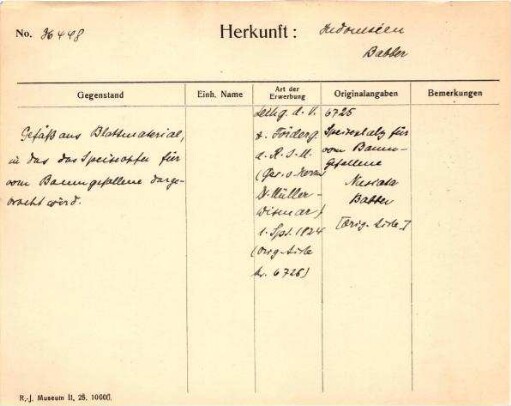 No. 36448 Herkunft: Indonesien
Babber
Gegenstand
Einh. Name
Art der Erwerbung
Originalangaben
Bemerkungen
Gefäß aus Blattmaterial,
in das das Speiseopfer für
vom Baum gefallene darge-
bracht wird.
Leihg. d. V.
z. Förderg.
d. R.-J.-M.
(Ges. v.
Dr. Müller-
Wismar)
1. Spt. 1924
(Orig. Liste
Nr. 6725)
6725
für
vom Baum
gefallene
Babber
[Orig.-Liste]
R.-J. Museum II, 25. 10000.